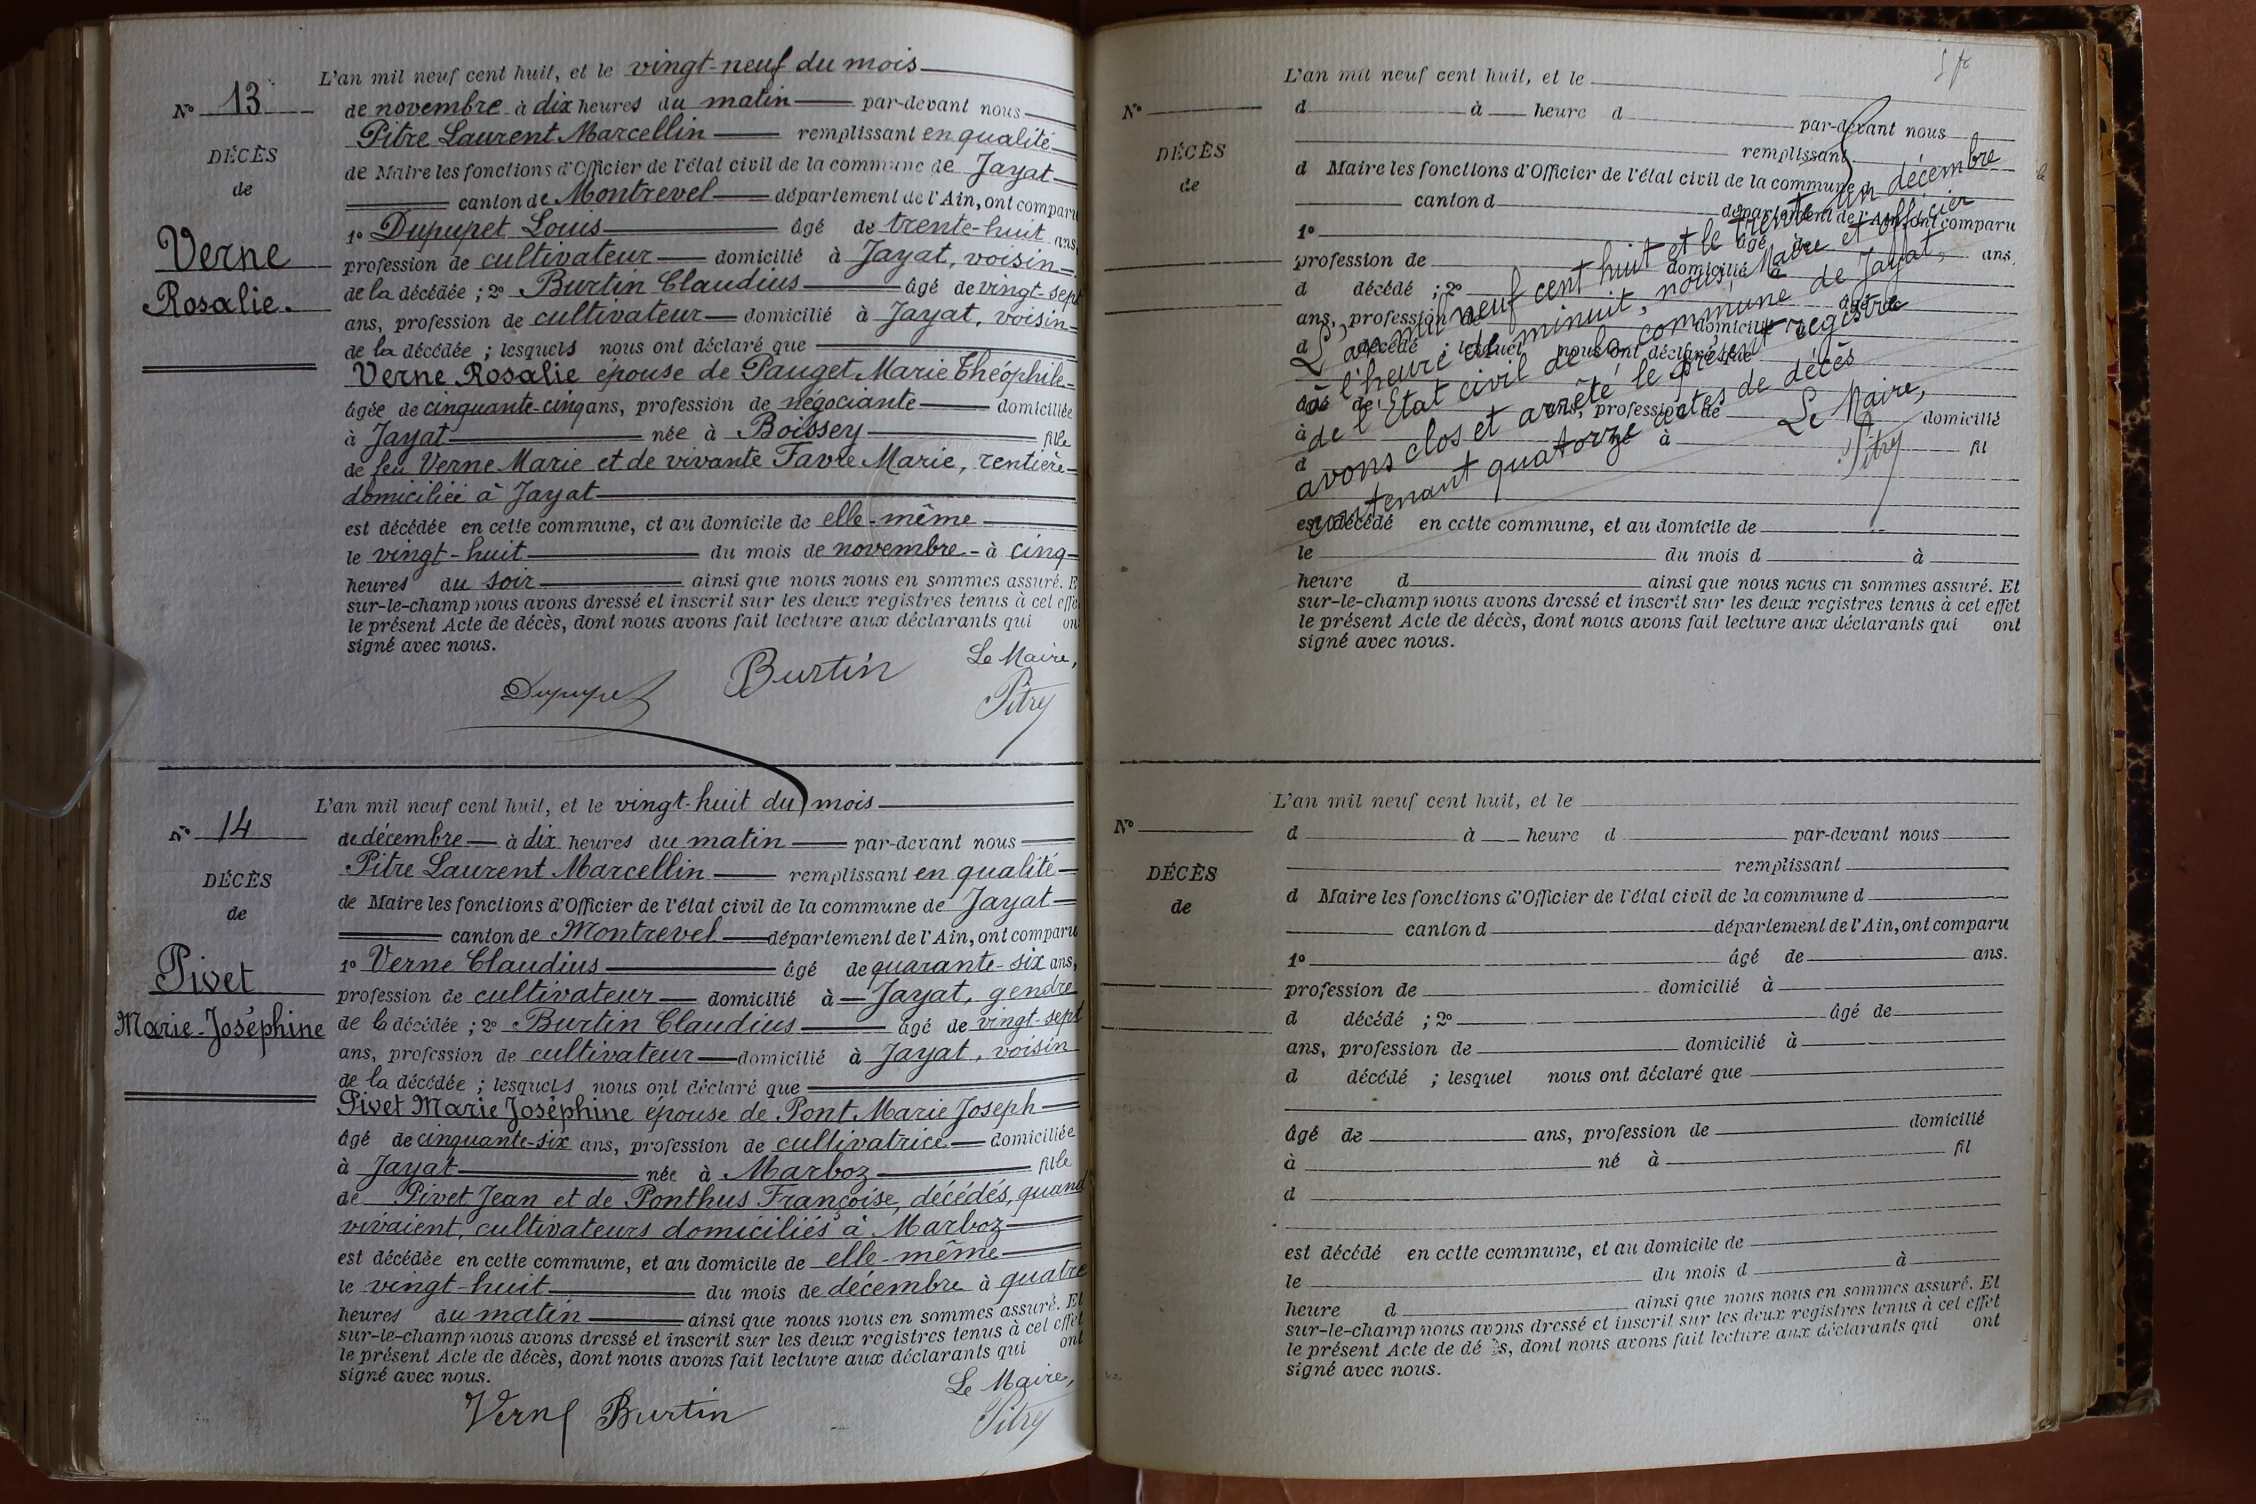 N° 13
DÉCÈS
de
Verne
Rosalie.
L'an mil neuf cent huit, et le vingt-neuf du mois
de novembre à dix heures du matin par-devant nous
Pitre Laurent Marcellin remplissant en qualité
de Maire les fonctions d'Officier de l'état civil de la commune de Jayat
canton de Montrevel département de l'Ain, ont comparu
1° Dupupet Louis âgé de trente-huit ans,
profession de cultivateur domicilié à Jayat, voisin
de la décédée ; 2° Burtin Claudius âgé de vingt-sept
ans, profession de cultivateur domicilié à Jayat, voisin
de la décédée ; lesquels nous ont déclaré que
Verne Rosalie épouse de Pauget Marie Théophile
âgée de cinquante-cinq ans, profession de négociante domiciliée
à Jayat née à Boissey fille
de feu Verne Marie et de vivante Favre Marie, rentière
domiciliée à Jayat
est décédée en cette commune, et au domicile de elle-même
le vingt-huit du mois de novembre à cinq
heures du soir ainsi que nous nous en sommes assuré. E
sur-le-champ nous avons dressé et inscrit sur les deux registres tenus à cet effe
le présent Acte de décès, dont nous avons fait lecture aux déclarants qui on
signé avec nous.
Le Maire,
Dupupet Burtin Pitre
N° 14
DÉCÈS
de
Pivet
Marie-Joséphine
L'an mil neuf cent huit, et le vingt-huit du mois
de décembre à dix heures du matin par-devant nous
Pitre Laurent Marcellin remplissant en qualité
de Maire les fonctions d'Officier de l'état civil de la commune de Jayat
canton de Montrevel département de l'Ain, ont comparu
1° Verne Claudius âgé de quarante-six ans,
profession de cultivateur domicilié à Jayat, gendre
de la décédée ; 2° Burtin Claudius âgé de vingt-sept
ans, profession de cultivateur domicilié à Jayat, voisin
de la décédée ; lesquels nous ont déclaré que
Pivet Marie Joséphine épouse de Pont Marie Joseph
âgé de cinquante-six ans, profession de cultivatrice domiciliée
à Jayat née à Marboz fille
de Pivet Jean et de Ponthus Françoise, décédés, quand
vivaient, cultivateurs domiciliés à Marboz
est décédée en cette commune, et au domicile de elle-même
le vingt-huit du mois de décembre à quatre
heures du matin ainsi que nous nous en sommes assuré. Et
sur-le-champ nous avons dressé et inscrit sur les deux registres tenus à cet effet
le présent Acte de décès, dont nous avons fait lecture aux déclarants qui ont
signé avec nous.
Le Maire,
Verne Burtin Pitre
N°
DÉCÈS
de
L'an mil neuf cent huit, et le
d à heure d par-devant nous
remplissant
d Maire les fonctions d'Officier de l'état civil de la commune d
canton d département de l'Ain, ont comparu
1° âgé de ans,
profession de domicilié à
d décédé ; 2° âgé de
ans, profession de domicilié à
d décédé ; lesquel nous ont déclaré que
âgé de ans, profession de domicilié
à né à fil
d
est décédé en cette commune, et au domicile de
le du mois d à
heure d ainsi que nous nous en sommes assuré. Et
sur-le-champ nous avons dressé et inscrit sur les deux registres tenus à cet effet
le présent Acte de décès, dont nous avons fait lecture aux déclarants qui ont
signé avec nous.
L'an mil neuf cent huit et le trente un décembre
à l'heure de minuit, nous, Maire et officier
de l'État civil de la commune de Jayat,
avons clos et arrêté le présent registre
contenant quatorze actes de décès
Le Maire,
Pitre
N°
DÉCÈS
de
L'an mil neuf cent huit, et le
d à heure d par-devant nous
remplissant
d Maire les fonctions d'Officier de l'état civil de la commune d
canton d département de l'Ain, ont comparu
1° âgé de ans.
profession de domicilié à
d décédé ; 2° âgé de
ans, profession de domicilié à
d décédé ; lesquel nous ont déclaré que
âgé de ans, profession de domicilié
à né à fil
d
est décédé en cette commune, et au domicile de
le du mois d à
heure d ainsi que nous nous en sommes assuré. Et
sur-le-champ nous avons dressé et inscrit sur les deux registres tenus à cet effet
le présent Acte de dé s, dont nous avons fait lecture aux déclarants qui ont
signé avec nous.